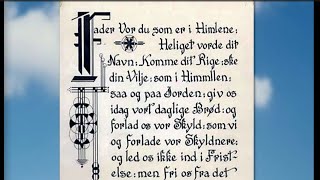 Fader Vor du som er i Himlene:
Heliget vorde dit
Navn: Komme dit Rige: ske
din Vilje: som i Himmilen:
saa og paa Jorden: giv os
idag vort daglige Brød: og
forlad os vor Skyld: som vi
og forlade vor Skyldnere:
og led os ikke ind i Frist-
else: men fri os fra det